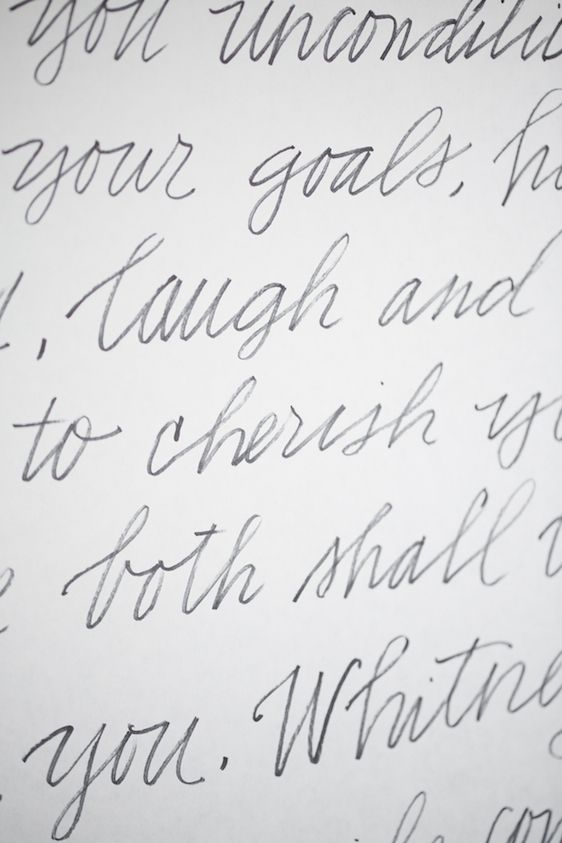 you unconditi
your goals, h
, laugh and
to cherish yo
both shall
you. Whitne